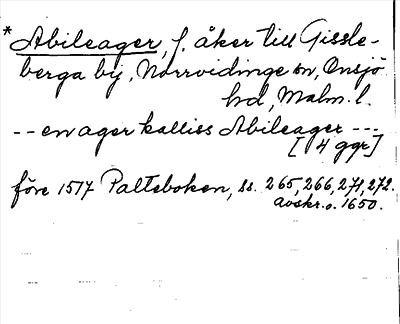 * Abileager, f. åker till Gissle-
berga by, Norrvidinge sn, Onsjö
hd, Malm. l.
-- en ager kalliss Abileager ---
[4 ggr]
före 1517 Paltsboken, ss. 265, 266, 271, 272.
avskr. o. 1650.